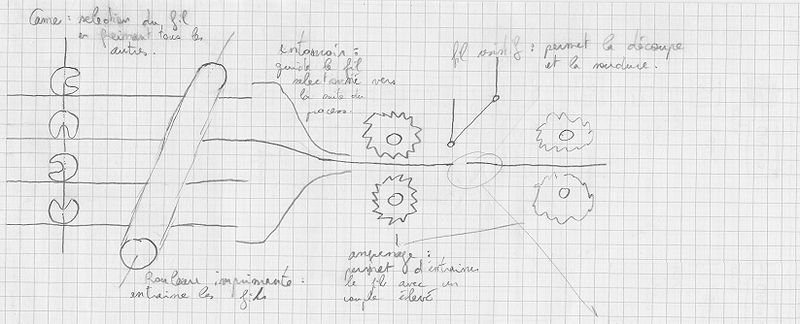 Came : selection du fil
en freinant tous les
autres.
entonnoir :
guide le fil
selectionné vers
la suite du
process.
fil resistif : permet la découpe
et la soudure.
Rouleau imprimante :
entraine les fils
engrenage :
permet d'entrainer
le fil avec un
couple élevé